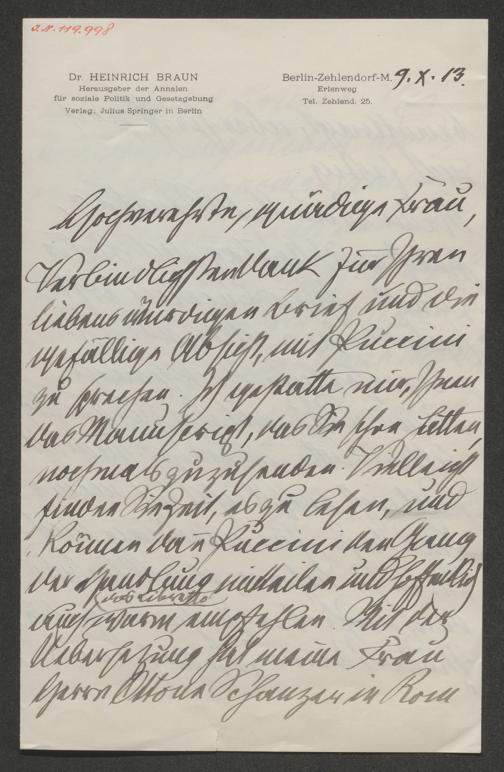 J.N. 119.998
Dr. HEINRICH BRAUN
Herausgeber der Annalen
für soziale Politik und Gesetzgebung
Verlag: Julius Springer in Berlin
Berlin-Zehlendorf-M. 9. X. 13.
Erlenweg
Tel. Zehlend. 25.
Hochverehrte, gnädige Frau,
Verbindlichsten Dank für Ihren
liebenswürdigen Brief und die
gefällige Absicht, mit Puccini
zu sprechen. Ich gestatte mir, Ihnen
das Manuscript, das Sie schon hatten,
nochmals zuzusenden. Vielleicht
finden Sie Zeit, es zu lesen, und
können dann Puccini den Gang
der Handlung mitteilen und hoffentlich
auch das Libretto warm empfehlen. Mit der
Uebersetzung hat meine Frau
Herrn Ottone Schanzer in Rom